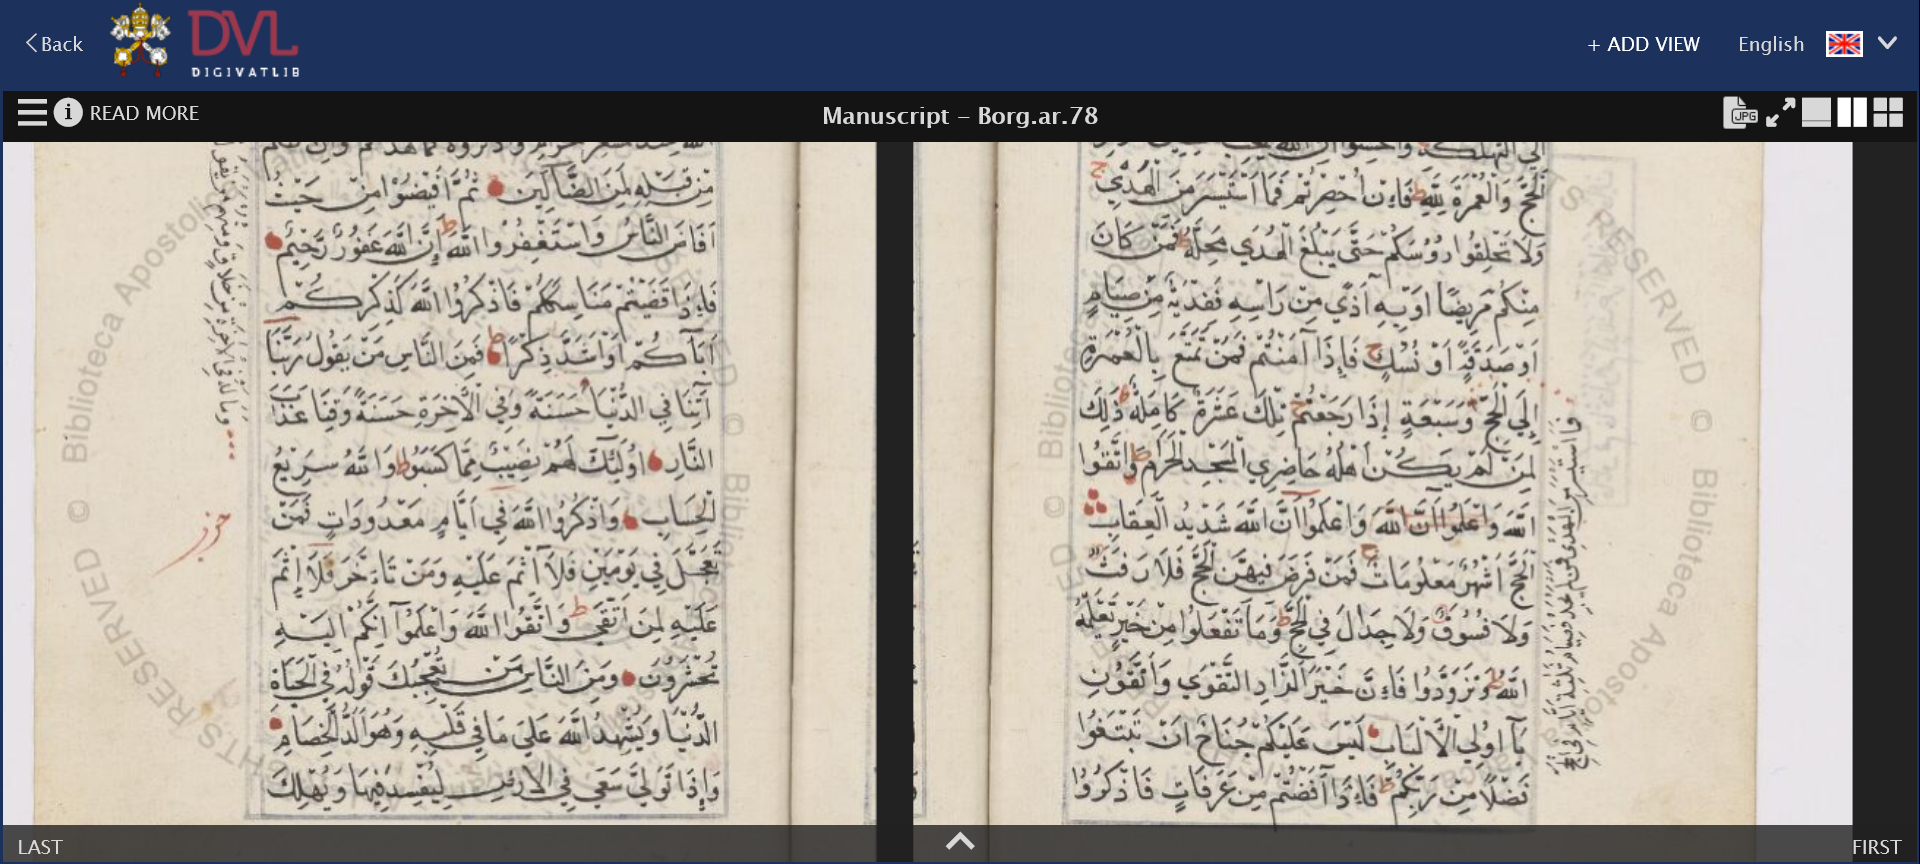 Back
DVL
DIGIVATLIB
+ ADD VIEW
English
READ MORE
Manuscript – Borg.ar.78
اِلَي التَّهْلُكَةِ وَاَحْسِنُوا اِنَّ اللهَ يُحِبُّ
الْحَجَّ وَالْعُمْرَةَ لِلّٰهِ ط فَاِنْ اُحْصِرْتُمْ فَمَا اسْتَيْسَرَ مِنَ الْهَدْيِ ج
وَلَا تَحْلِقُوا رُؤُسَكُمْ حَتَّي يَبْلُغَ الْهَدْيُ مَحِلَّهُ ط فَمَنْ كَانَ
مِنْكُمْ مَرِيضًا اَوْ بِهِ اَذًي مِنْ رَاْسِهِ فَفِدْيَةٌ مِنْ صِيَامٍ
اَوْ صَدَقَةٍ اَوْ نُسُكٍ ج فَاِذَا اَمِنْتُمْ فَمَنْ تَمَتَّعَ بِالْعُمْرَةِ
اِلَي الْحَجِّ وَسَبْعَةٍ اِذَا رَجَعْتُمْ ج تِلْكَ عَشَرَةٌ كَامِلَةٌ ط ذَلِكَ
لِمَنْ لَمْ يَكُنْ اَهْلُهُ حَاضِرِي الْمَسْجِدِ الْحَرَامِ ط وَاتَّقُوا
اللهَ وَاعْلَمُوا اَنَّ اللهَ وَاعْلَمُوا اَنَّ اللهَ شَدِيدُ الْعِقَابِ
الْحَجُّ اَشْهُرٌ مَعْلُومَاتٌ ج فَمَنْ فَرَضَ فِيهِنَّ الْحَجَّ فَلَا رَفَثَ
وَلَا فُسُوقَ وَلَا جِدَالَ فِي الْحَجِّ ط وَمَا تَفْعَلُوا مِنْ خَيْرٍ يَعْلَمْهُ
اللهُ ط وَتَزَوَّدُوا فَاِنَّ خَيْرَ الزَّادِ التَّقْوَي وَاتَّقُونِ
يَا اُولِي الْاَلْبَابِ لَيْسَ عَلَيْكُمْ جُنَاحٌ اَنْ تَبْتَغُوا
فَضْلًا مِنْ رَبِّكُمْ ط فَاِذَا اَفَضْتُمْ مِنْ عَرَفَاتٍ فَاذْكُرُوا
فَمَا اسْتَيْسَرَ مِنَ الْهَدْيِ فَمَنْ لَمْ يَجِدْ فَصِيَامُ ثَلٰثَةِ اَيَّامٍ فِي الْحَجِّ
مِنْ قَبْلِهِ لَمِنَ الضَّالِّينَ ثُمَّ اَفِيضُوا مِنْ حَيْثُ
اَفَاضَ النَّاسُ وَاسْتَغْفِرُوا اللهَ ط اِنَّ اللهَ غَفُورٌ رَحِيمٌ
فَاِذَا قَضَيْتُمْ مَنَاسِكَكُمْ فَاذْكُرُوا اللهَ كَذِكْرِكُمْ
اَبَاءَكُمْ اَوْ اَشَدَّ ذِكْرًا ط فَمِنَ النَّاسِ مَنْ يَقُولُ رَبَّنَا
اٰتِنَا فِي الدُّنْيَا حَسَنَةً وَفِي الْاٰخِرَةِ حَسَنَةً وَقِنَا عَذَابَ
النَّارِ اُولٰئِكَ لَهُمْ نَصِيبٌ مِمَّا كَسَبُوا ط وَاللهُ سَرِيعُ
الْحِسَابِ وَاذْكُرُوا اللهَ فِي اَيَّامٍ مَعْدُودَاتٍ فَمَنْ
تَعَجَّلَ فِي يَوْمَيْنِ فَلَا اِثْمَ عَلَيْهِ وَمَنْ تَاَخَّرَ فَلَا اِثْمَ
عَلَيْهِ لِمَنِ اتَّقَي ط وَاتَّقُوا اللهَ وَاعْلَمُوا اَنَّكُمْ اِلَيْهِ
تُحْشَرُونَ وَمِنَ النَّاسِ مَنْ يُعْجِبُكَ قَوْلُهُ فِي الْحَيَاةِ
الدُّنْيَا وَيُشْهِدُ اللهَ عَلَي مَا فِي قَلْبِهِ وَهُوَ اَلَدُّ الْخِصَامِ
وَاِذَا تَوَلَّي سَعَي فِي الْاَرْضِ لِيُفْسِدَ فِيهَا وَيُهْلِكَ
حزب
LAST
FIRST